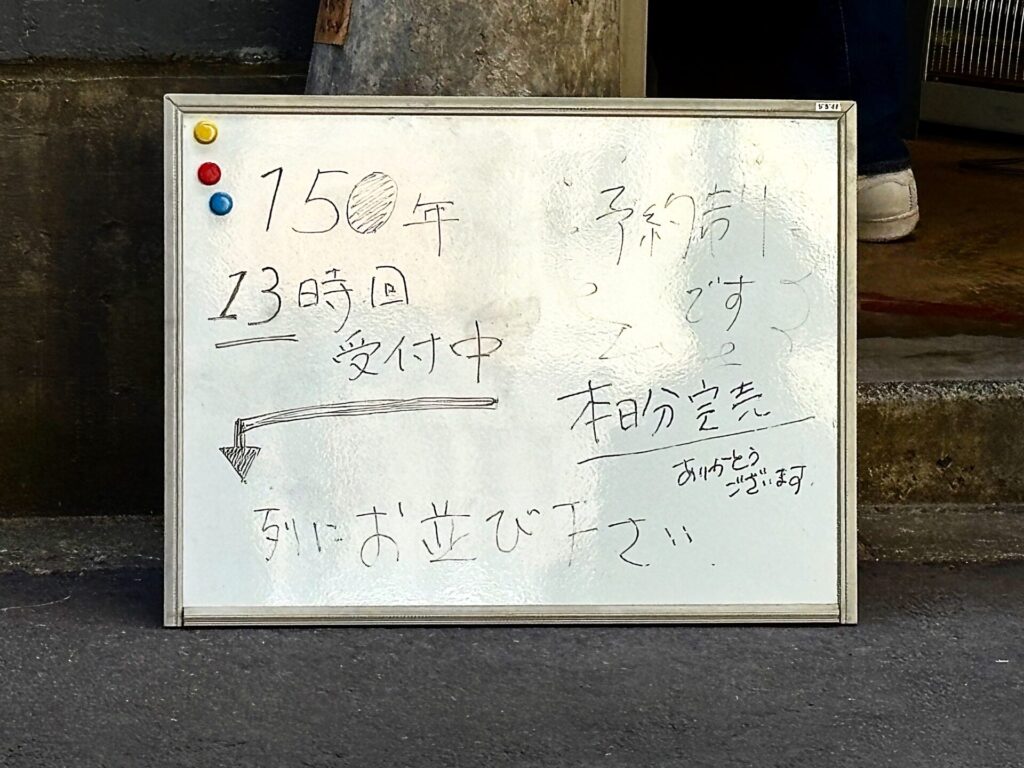 150年
13時回
受付中
列にお並び下さい
予約制
です
本日分完売
ありがとう
ございます。